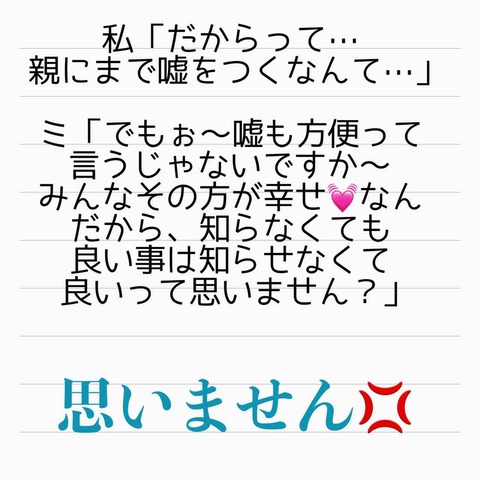 私「だからって…
親にまで嘘をつくなんて…」
ミ「でもぉ〜嘘も方便って
言うじゃないですか〜
みんなその方が幸せ💓なん
だから、知らなくても
良い事は知らせなくて
良いって思いません？」
思いません💢